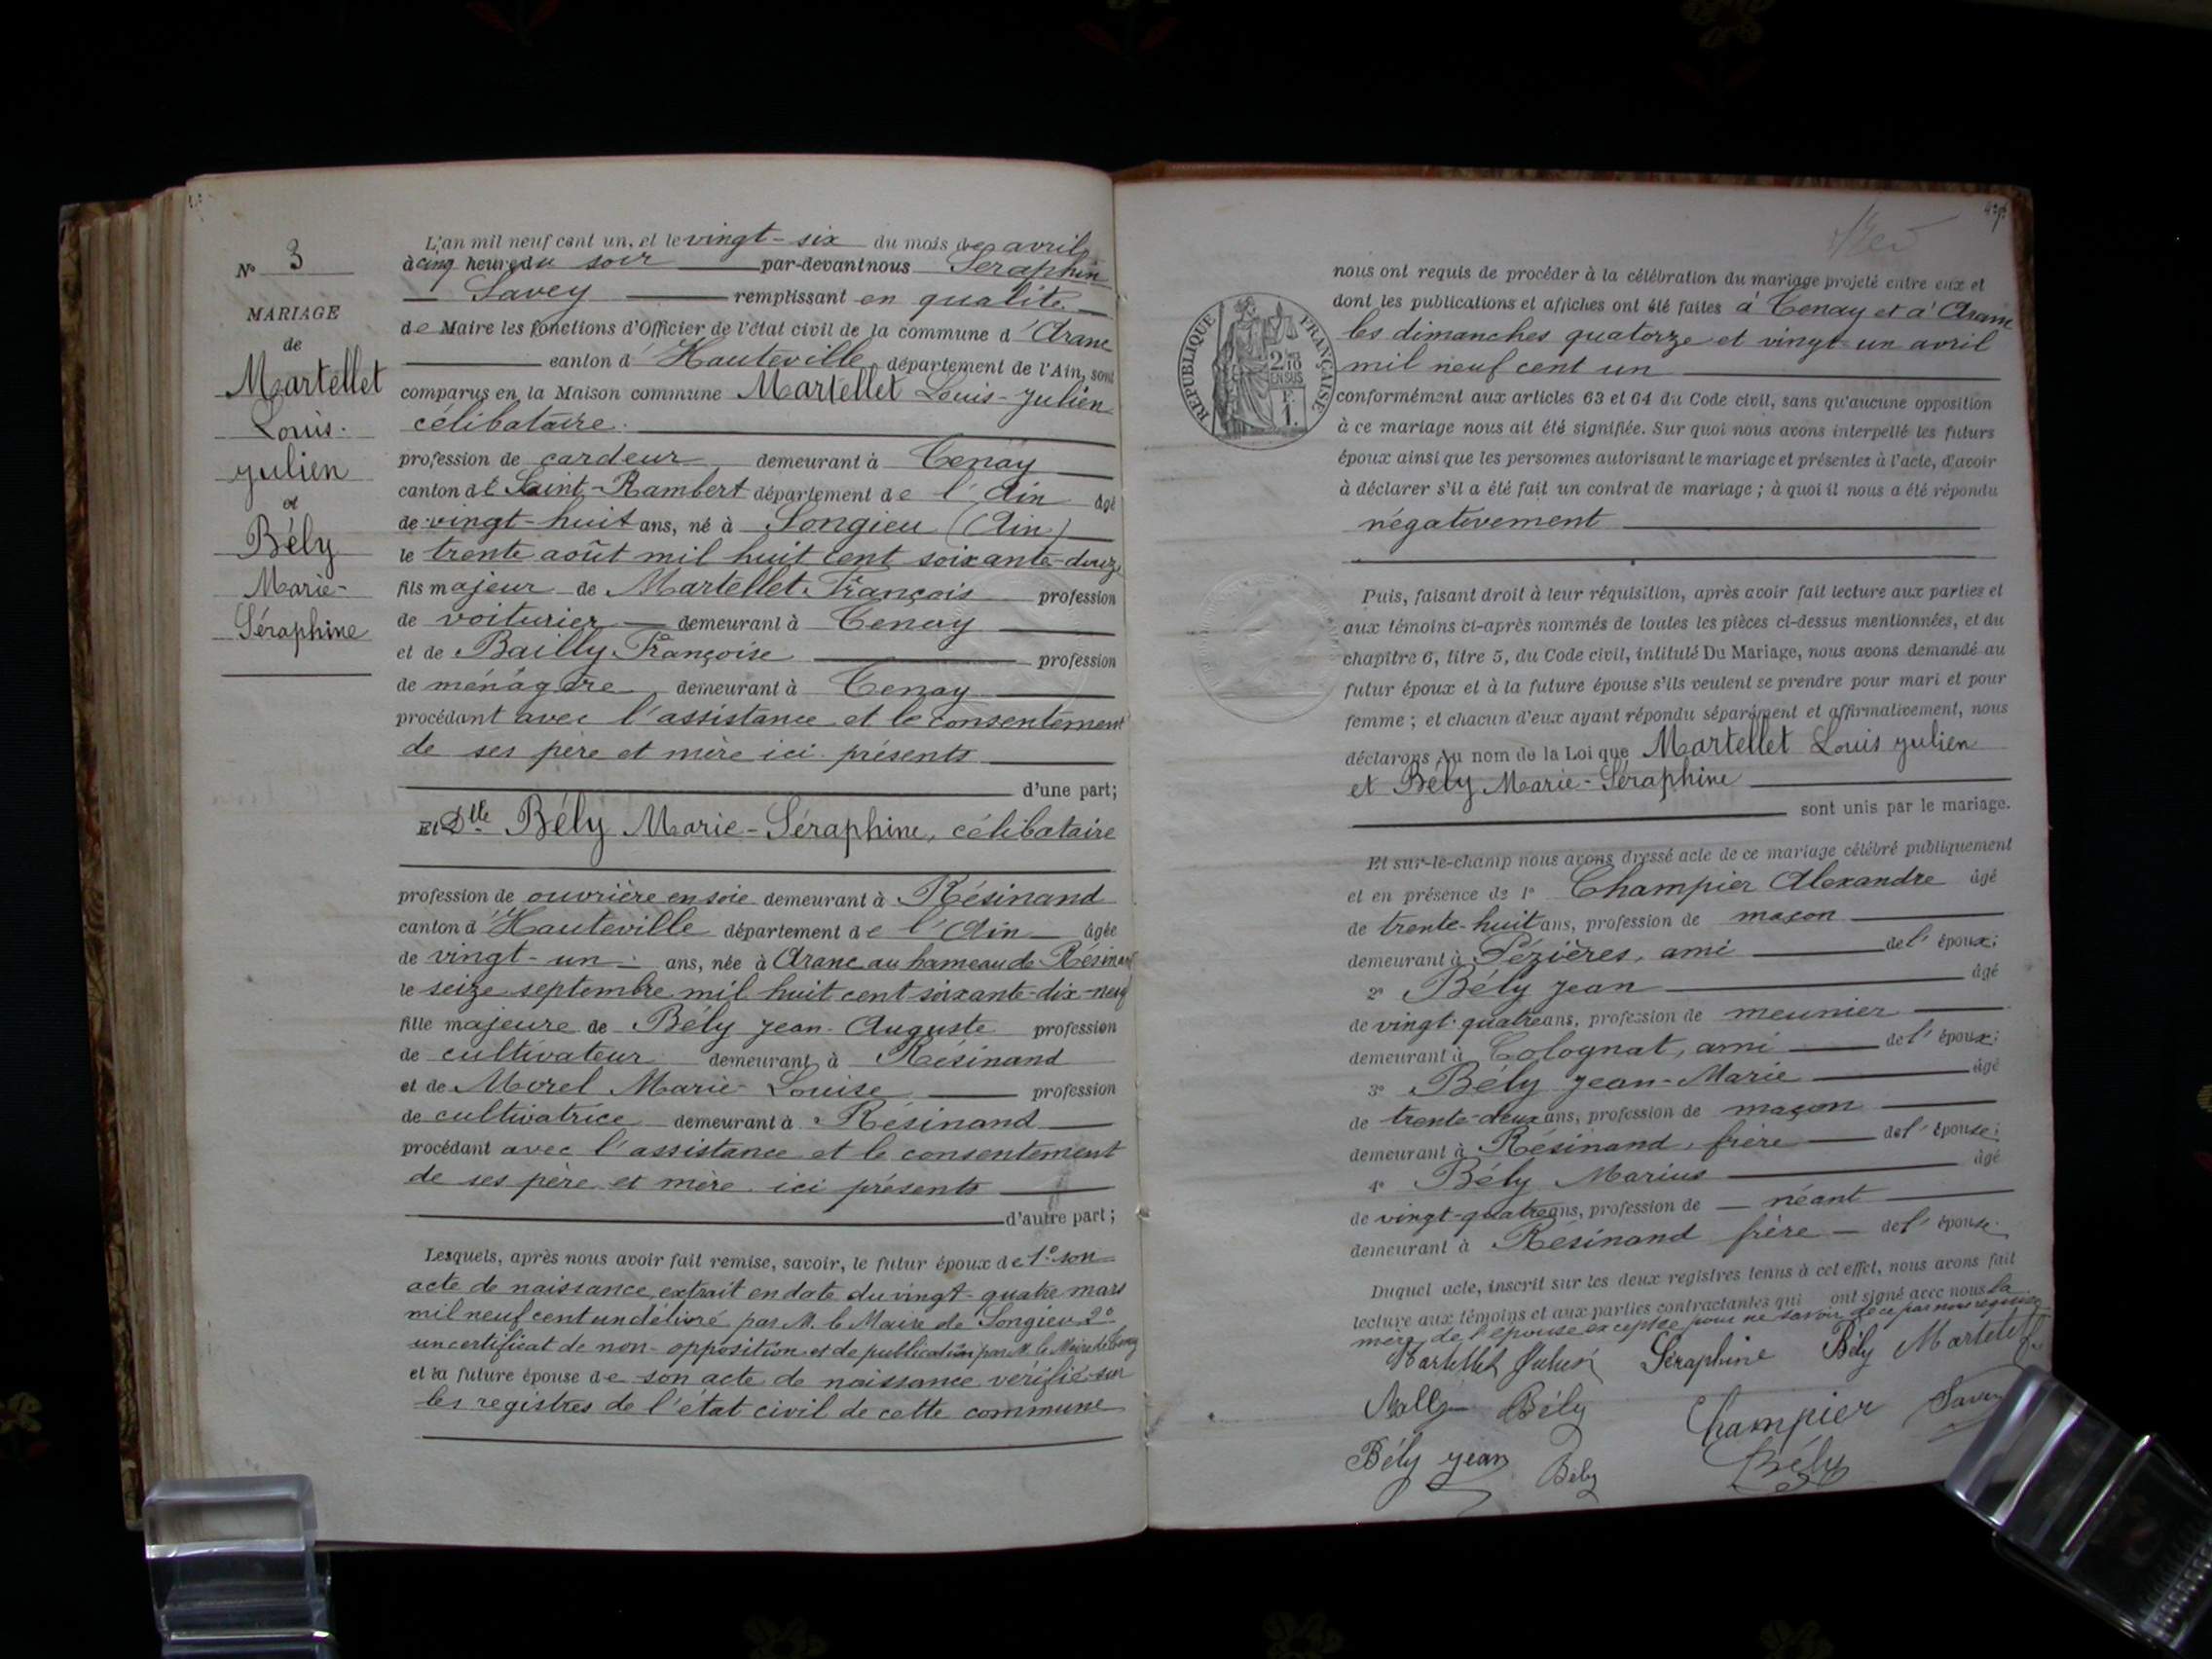 N° 3
MARIAGE
de
Martellet
Louis-
Julien
et
Bély
Marie-
Séraphine
L'an mil neuf cent un, et le vingt-six du mois de avril
à cinq heures du soir par-devant nous Séraphin
Savey remplissant en qualité
de Maire les fonctions d'Officier de l'état civil de la commune d'Aranc
canton d'Hauteville, département de l'Ain, sont
comparus en la Maison commune Martellet Louis-Julien
célibataire.
profession de cardeur demeurant à Tenay
canton de Saint-Rambert département de l'Ain âgé
de vingt-huit ans, né à Songieu (Ain)
le trente août mil huit cent soixante-douze
fils majeur de Martellet François profession
de voiturier demeurant à Tenay
et de Bailly Françoise profession
de ménagère demeurant à Tenay
procédant avec l'assistance et le consentement
de ses père et mère ici présents
d'une part;
Et Dlle Bély Marie-Séraphine, célibataire
profession de ouvrière en soie demeurant à Résinand
canton d'Hauteville département de l'Ain âgée
de vingt-un ans, née à Aranc au hameau de Résinand
le seize septembre mil huit cent soixante-dix-neuf
fille majeure de Bély Jean-Auguste profession
de cultivateur demeurant à Résinand
et de Morel Marie-Louise profession
de cultivatrice demeurant à Résinand
procédant avec l'assistance et le consentement
de ses père et mère ici présents
d'autre part;
Lesquels, après nous avoir fait remise, savoir, le futur époux de 1° son
acte de naissance, extrait en date du vingt-quatre mars
mil neuf cent un délivré par M. le Maire de Songieu 2°
un certificat de non-opposition et de publication par M. le Maire de Tenay
et la future épouse de son acte de naissance vérifié sur
les registres de l'état civil de cette commune
RÉPUBLIQUE FRANÇAISE
nous ont requis de procéder à la célébration du mariage projeté entre eux et
dont les publications et affiches ont été faites à Tenay et à Aranc
les dimanches quatorze et vingt-un avril
mil neuf cent un
conformément aux articles 63 et 64 du Code civil, sans qu'aucune opposition
à ce mariage nous ait été signifiée. Sur quoi nous avons interpellé les futurs
époux ainsi que les personnes autorisant le mariage et présentes à l'acte, d'avoir
à déclarer s'il a été fait un contrat de mariage; à quoi il nous a été répondu
négativement
Puis, faisant droit à leur réquisition, après avoir fait lecture aux parties et
aux témoins ci-après nommés de toutes les pièces ci-dessus mentionnées, et du
chapitre 6, titre 5, du Code civil, intitulé Du Mariage, nous avons demandé au
futur époux et à la future épouse s'ils veulent se prendre pour mari et pour
femme; et chacun d'eux ayant répondu séparément et affirmativement, nous
déclarons Au nom de la Loi que Martellet Louis Julien
et Bély Marie-Séraphine
sont unis par le mariage.
Et sur-le-champ nous avons dressé acte de ce mariage célébré publiquement
et en présence de 1° Champier Alexandre âgé
de trente-huit ans, profession de maçon
demeurant à Pézières, ami de l'époux;
2° Bély Jean âgé
de vingt-quatre ans, profession de meunier
demeurant à Colognat, ami de l'époux;
3° Bély Jean-Marie âgé
de trente-deux ans, profession de maçon
demeurant à Résinand, frère de l'épouse;
4° Bély Marius âgé
de vingt-quatre ans, profession de néant
demeurant à Résinand frère de l'épouse.
Duquel acte, inscrit sur les deux registres tenus à cet effet, nous avons fait
lecture aux témoins et aux parties contractantes qui ont signé avec nous la
mère de l'épouse exceptée pour ne savoir de ce par nous requise
Martellet Séraphine Bély Martellet
Bély Champier Savey
Bély Jean Bély Bély